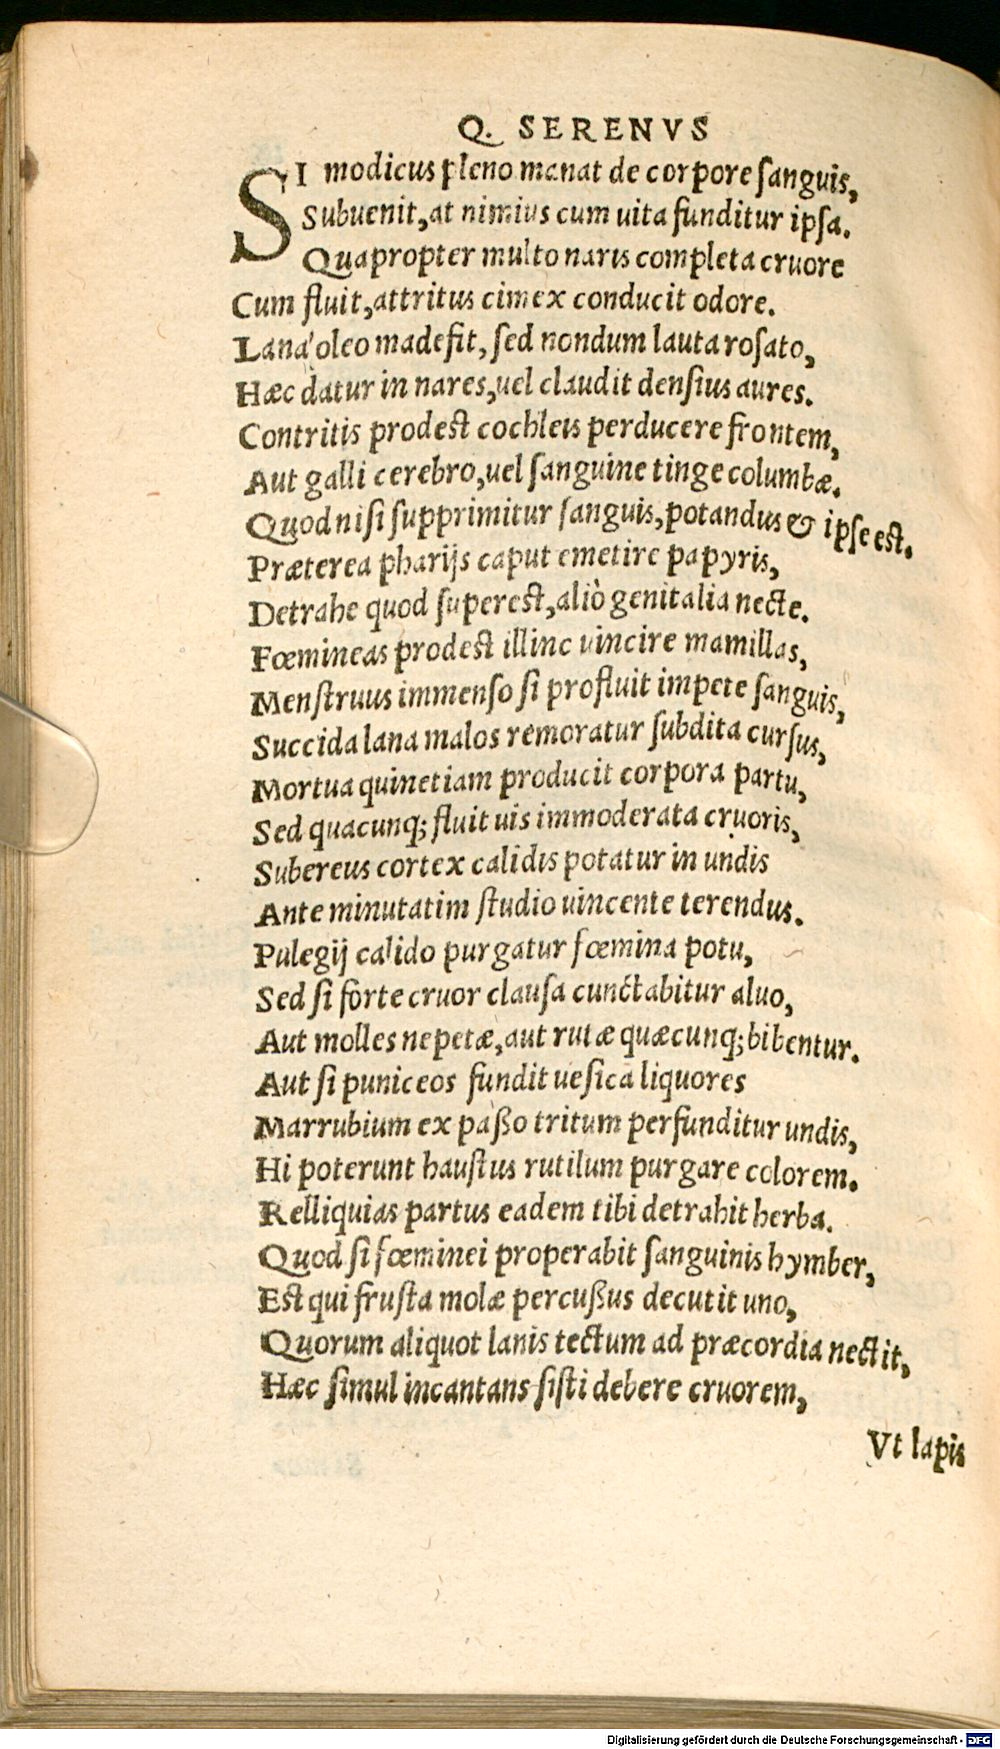 Q. SERENVS
SI modicus pleno manat de corpore ſanguis,
Subuenit, at nimius cum uita funditur ipſa.
Quapropter multo naris completa cruore
Cum fluit, attritus cimex conducit odore.
Lana oleo madefit, ſed nondum lauta roſato,
Hæc datur in nares, uel claudit denſius aures.
Contritis prodest cochleis perducere frontem,
Aut galli cerebro, uel ſanguine tinge columbæ.
Quod niſi ſupprimitur ſanguis, potandus & ipſe est.
Præterea pharijs caput emetire papyris,
Detrahe quod ſuperest, aliò genitalia necte.
Fœmineas prodest illinc uincire mamillas,
Menſtruus immenſo ſi profluit impete ſanguis,
Succida lana malos remoratur ſubdita curſus,
Mortua quinetiam producit corpora partu,
Sed quacunq; fluit uis immoderata cruoris,
Subereus cortex calidis potatur in undis
Ante minutatim ſtudio uincente terendus.
Pulegij calido purgatur fœmina potu,
Sed ſi forte cruor clauſa cunctabitur aluo,
Aut molles nepetæ, aut rutæ quæcunq; bibentur.
Aut ſi puniceos fundit ueſica liquores
Marrubium ex paſſo tritum perfunditur undis,
Hi poterunt hauſtus rutilum purgare colorem.
Relliquias partus eadem tibi detrahit herba.
Quod ſi fœminei properabit ſanguinis hymber,
Est qui fruſta molæ percuſſus decutit uno,
Quorum aliquot lanis tectum ad præcordia nectit,
Hæc ſimul incantans ſiſti debere cruorem,
Vt lapis
Digitalisierung gefördert durch die Deutsche Forschungsgemeinschaft - DFG